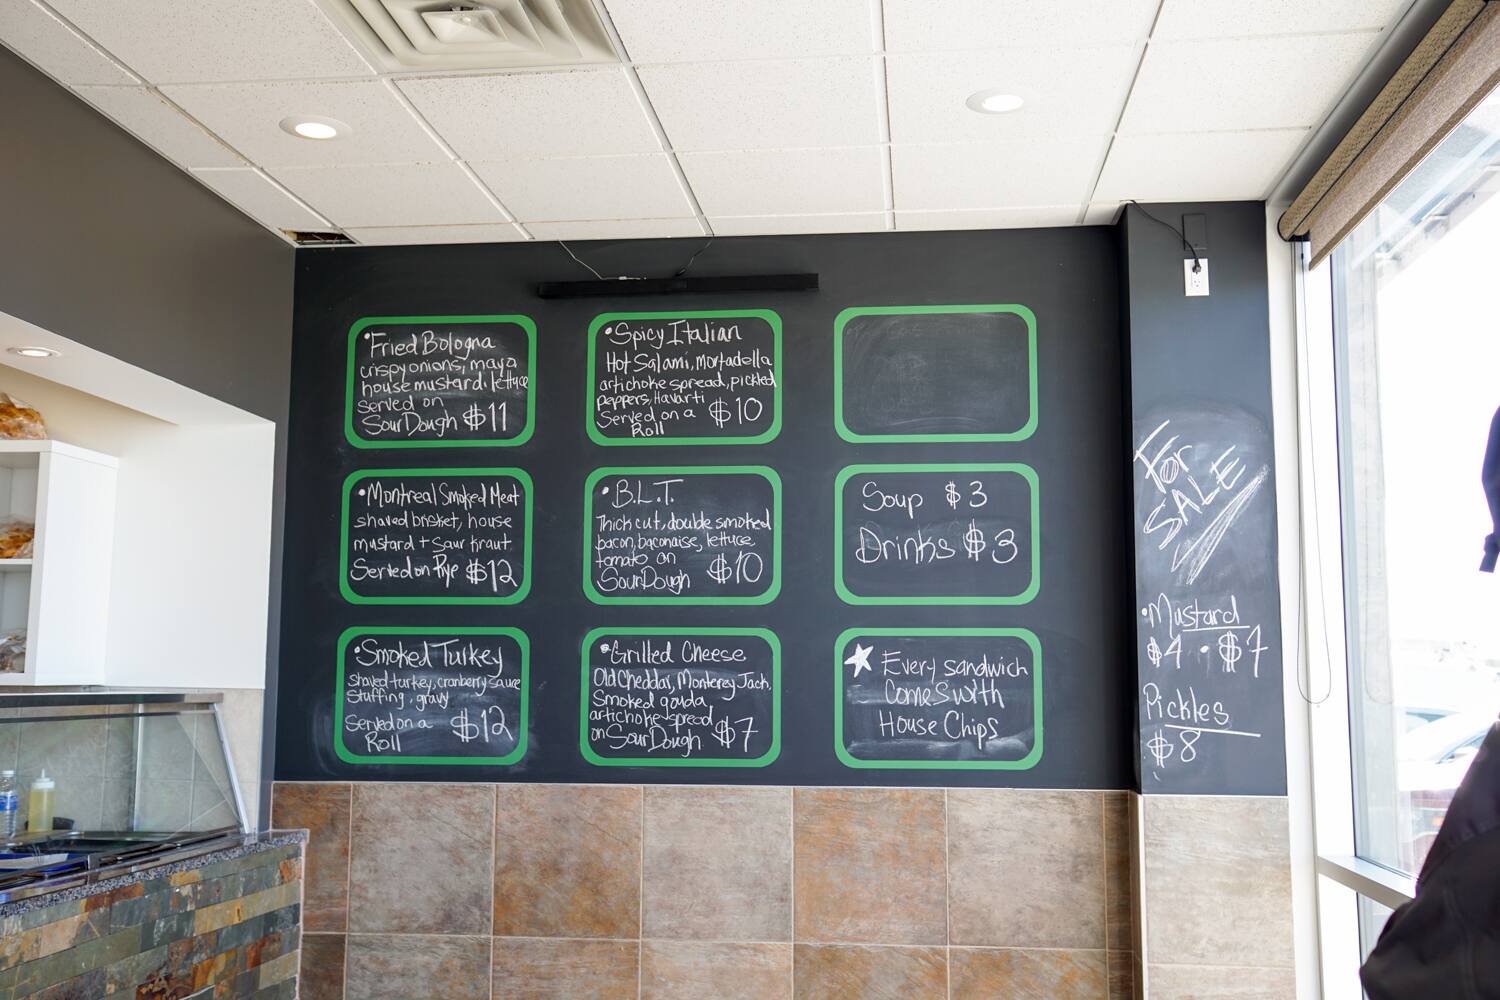 •Fried Bologna
crispy onions, mayo
house mustard, lettuce
served on
SourDough $11
•Montreal Smoked Meat
shaved brisket, house
mustard + Saur kraut
Served on Rye $12
•Smoked Turkey
shaved turkey, cranberry sauce
stuffing, gravy
Served on a $12
Roll
•Spicy Italian
Hot Salami, mortadella
artichoke spread, pickled
peppers, Havarti
Served on a $10
Roll
•B.L.T.
Thick cut, double smoked
bacon, baconaise, lettuce
tomato on
SourDough $10
•Grilled Cheese
Old Cheddar, Monterey Jack,
Smoked gouda
artichoke spread
on SourDough $7
Soup $3
Drinks $3
Every sandwich
Comes with
House Chips
For
SALE
•Mustard
$4 • $7
Pickles
$8